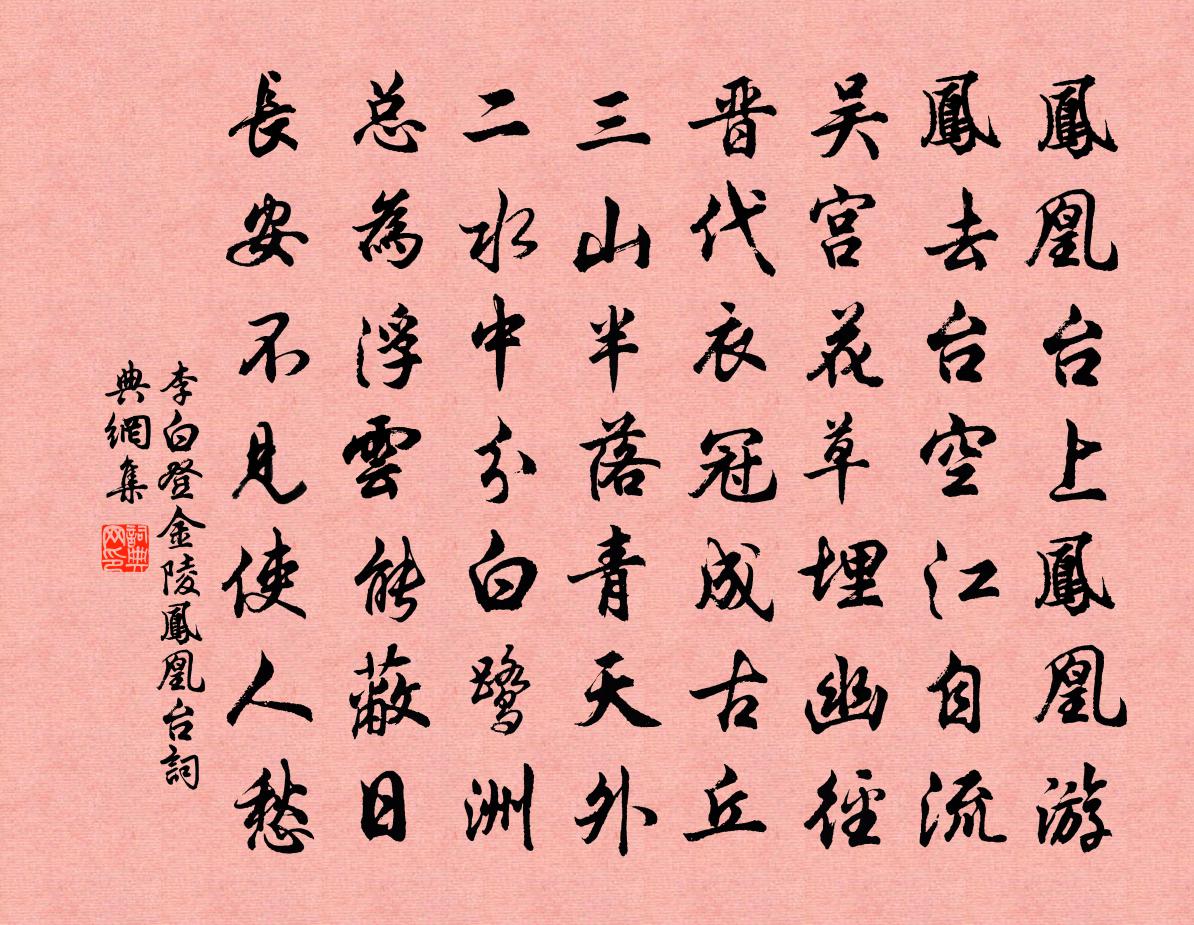 鳳凰台上鳳凰游
鳳去台空江自流
吴宫花草埋幽徑
晋代衣冠成古丘
三山半落青天外
二水中分白鷺洲
总為浮雲能蔽日
長安不見使人愁
李白登金陵鳳凰台詞
典網集
詞典
网印